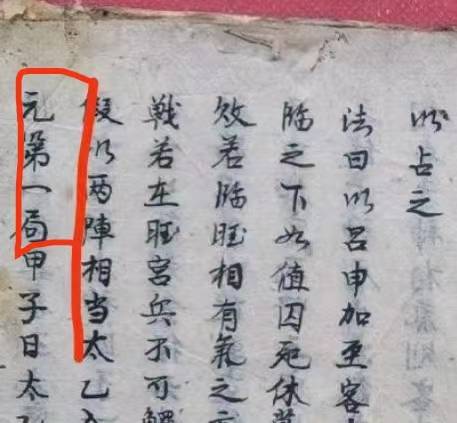 以占之
法曰以吕申加至客
臨之下如值囚死休
敗若臨旺相有氣之
戰若在旺宮兵不可
假以两陣相当太乙
元第一局甲子日太乙